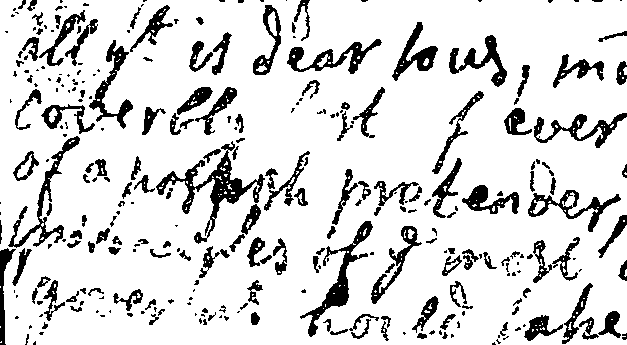 all yt is dear to us, m
coverbly lost if ever
of a popish pretender,
principles of ye most
governt should take